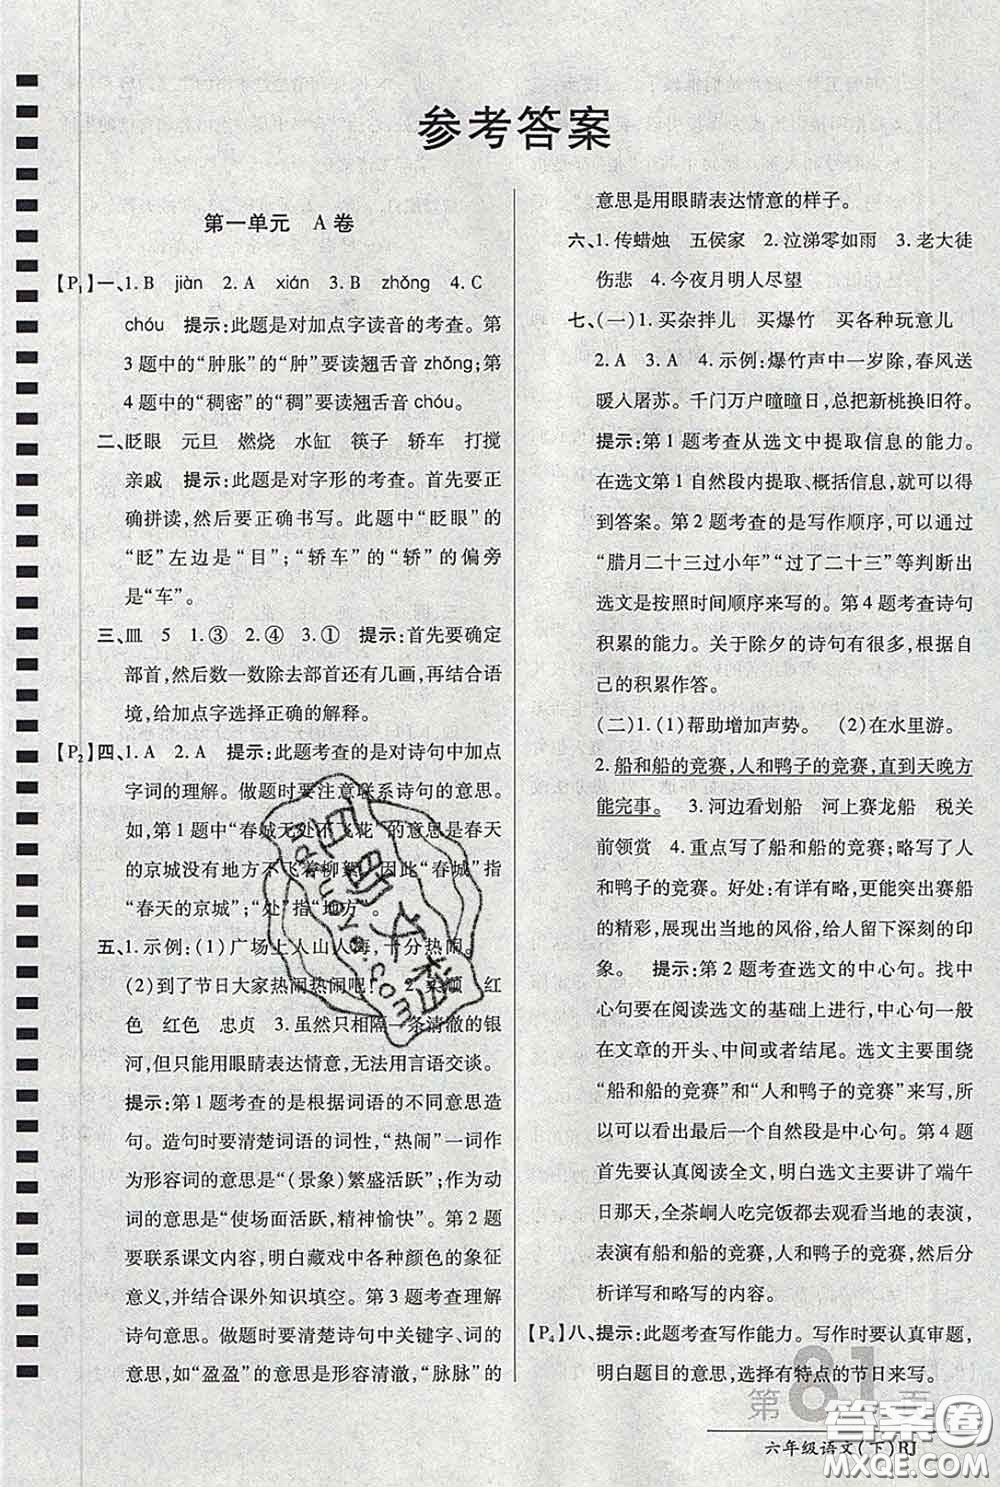 参考答案
第一单元 A卷
【P1】一、1.B jiàn 2.A xián 3.B zhǒng 4.C
chóu 提示:此题是对加点字读音的考查。第
3题中的“肿胀”的“肿”要读翘舌音zhǒng;第
4题中的“稠密”的“稠”要读翘舌音chóu。
二、眨眼 元旦 燃烧 水缸 筷子 轿车 打搅
亲戚 提示:此题是对字形的考查。首先要正
确拼读,然后要正确书写。此题中“眨眼”的
“眨”左边是“目”;“轿车”的“轿”的偏旁
是“车”。
三、皿 5 1.③ 2.④ 3.① 提示:首先要确定
部首,然后数一数除去部首还有几画,再结合语
境,给加点字选择正确的解释。
【P2】四、1.A 2.A 提示:此题考查的是对诗句中加点
字词的理解。做题时要注意联系诗句的意思。
如,第1题中“春城无处不飞花”的意思是春天
的京城没有地方不飞着柳絮,因此“春城”指
“春天的京城”;“处”指“地方”。
五、1.示例:(1)广场上人山人海,十分热闹。
(2)到了节日大家热闹热闹吧! 2.柔顺 红
色 红色 忠贞 3.虽然只相隔一条清澈的银
河,但只能用眼睛表达情意,无法用言语交谈。
提示:第1题考查的是根据词语的不同意思造
句。造句时要清楚词语的词性,“热闹”一词作
为形容词的意思是“(景象)繁盛活跃”;作为动
词的意思是“使场面活跃,精神愉快”。第2题
要联系课文内容,明白藏戏中各种颜色的象征
意义,并结合课外知识填空。第3题考查理解
诗句意思。做题时要清楚诗句中关键字、词的
意思,如“盈盈”的意思是形容清澈,“脉脉”的
意思是用眼睛表达情意的样子。
六、1.传蜡烛 五侯家 2.泣涕零如雨 3.老大徒
伤悲 4.今夜月明人尽望
七、(一)1.买杂拌儿 买爆竹 买各种玩意儿
2.A 3.A 4.示例:爆竹声中一岁除,春风送
暖入屠苏。千门万户曈曈日,总把新桃换旧符。
提示:第1题考查从选文中提取信息的能力。
在选文第1自然段内提取、概括信息,就可以
得到答案。第2题考查的是写作顺序,可以通过
“腊月二十三过小年”“过了二十三”等判断出
选文是按照时间顺序来写的。第4题考查诗句
积累的能力。关于除夕的诗句有很多,根据自
己的积累作答。
(二)1.(1)帮助增加声势。 (2)在水里游。
2.船和船的竞赛,人和鸭子的竞赛,直到天晚方
能完事。 3.河边看划船 河上赛龙船 税关
前领赏 4.重点写了船和船的竞赛;略写了人
和鸭子的竞赛。好处:有详有略,更能突出赛船
的精彩,展现出当地的风俗,给人留下深刻的印
象。 提示:第2题考查选文的中心句。找中
心句要在阅读选文的基础上进行,中心句一般
在文章的开头、中间或者结尾。选文主要围绕
“船和船的竞赛”和“人和鸭子的竞赛”来写,所
以可以看出最后一个自然段是中心句。第4题
首先要认真阅读全文,明白选文主要讲了端午
日那天,全茶峒人吃完饭都去观看当地的表演,
表演有船和船的竞赛、人和鸭子的竞赛,然后分
析详写和略写的内容。
【P4】八、提示:此题考查写作能力。写作时要认真审题,
明白题目的意思,选择有特点的节日来写。
第81页
六年级语文(下)RJ
答案圈
MXQE.COM